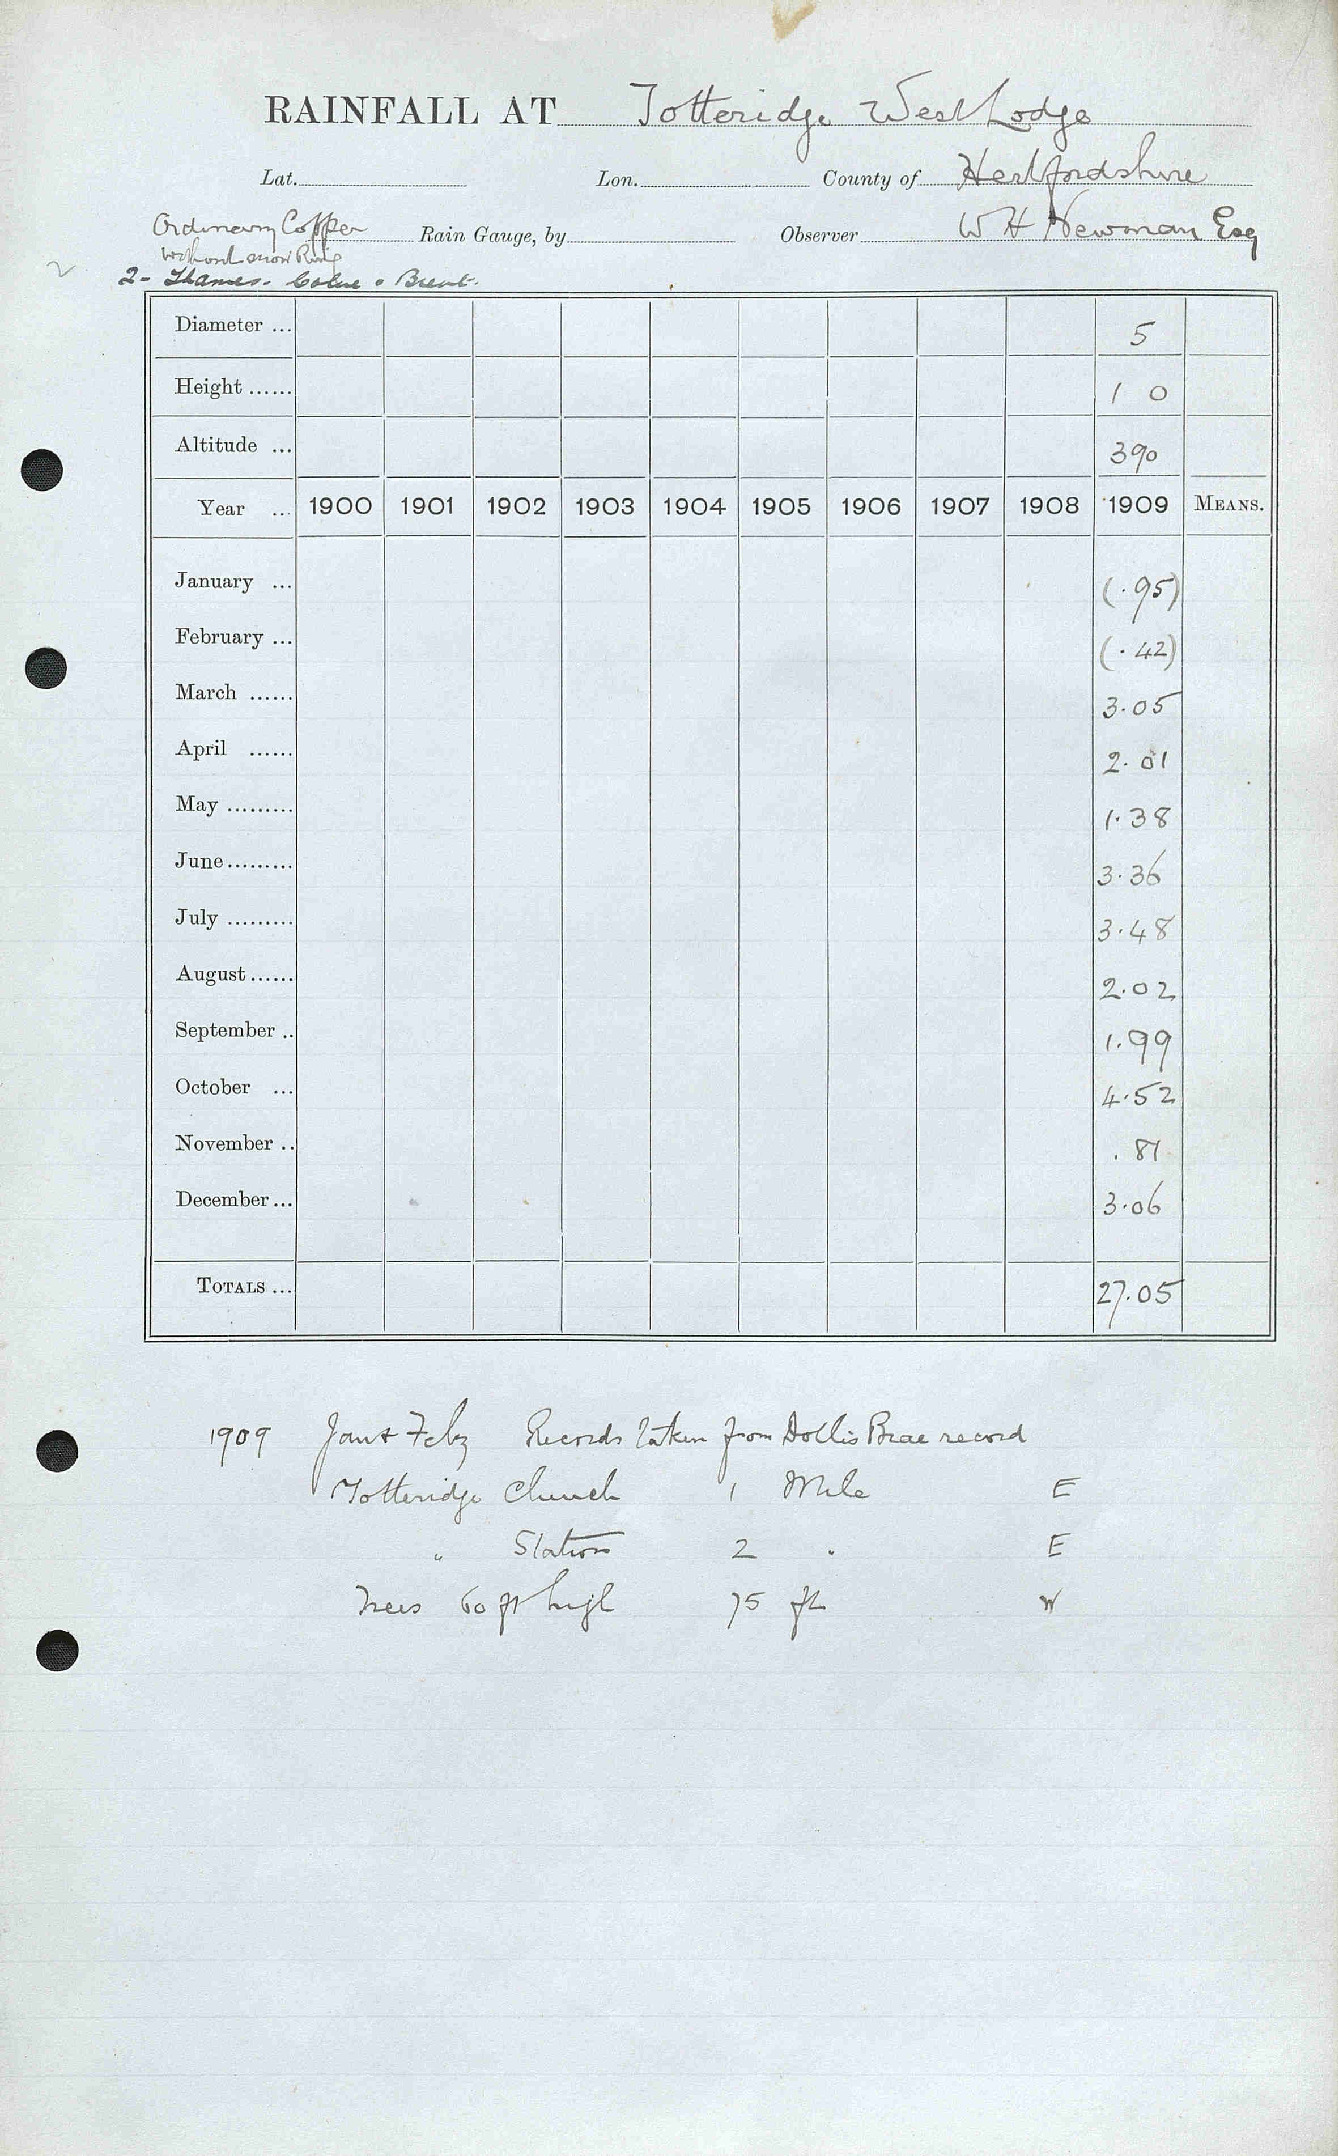 RAINFALL AT Totteridge West Lodge
Lat. Lon. County of Hertfordshire
Ordinary Copper Rain Gauge, by Observer W H Newman Esq
without snow Ring
2- Thames. Colne & Brent.
Diameter ... 5
Height ...... 1 0
Altitude ... 390
Year ... 1900 1901 1902 1903 1904 1905 1906 1907 1908 1909 MEANS.
January ... (.95)
February ... (.42)
March ...... 3.05
April ...... 2.01
May ......... 1.38
June ......... 3.36
July ......... 3.48
August ...... 2.02
September .. 1.99
October ... 4.52
November .. .81
December ... 3.06
TOTALS ... 27.05
1909 Jan & Feby Records taken from Dollis Brae record
Totteridge Church 1 Mile E
" Station 2 " E
Trees 60 ft high 75 ft W